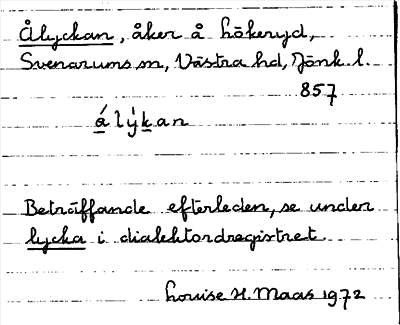 Ålyckan, åker å håkeryd,
Svenarums sn, Västra hd, Jönk. l.
857
álýkan
Beträffande efterleden, se under
lycka i dialektordregistret.
Louise H. Maas 1972